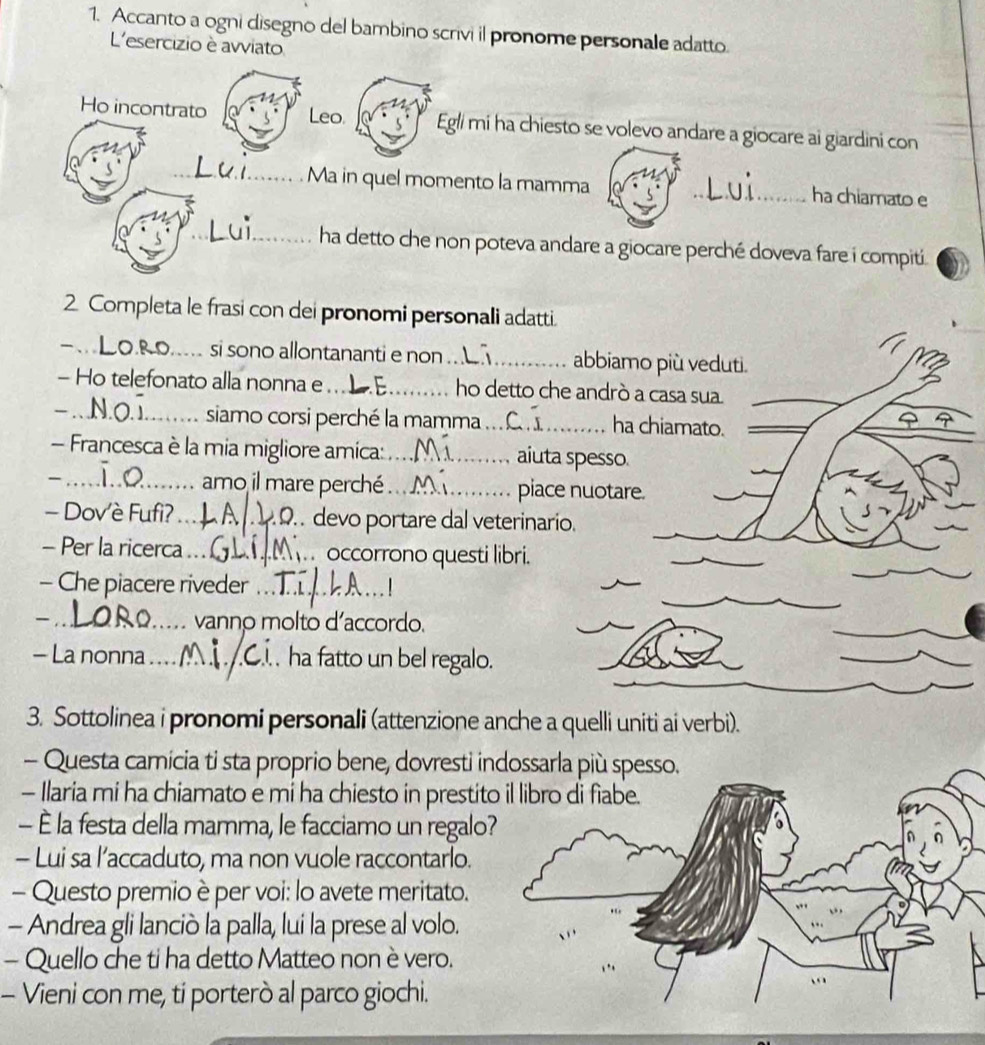 1. Accanto a ogni disegno del bambino scrivi il pronome personale adatto.
L'esercizio è avviato.
Ho incontrato Leo. Egli mi ha chiesto se volevo andare a giocare ai giardini con
...Lui....... . Ma in quel momento la mamma ..LUi........ ha chiamato e
...LUi.......... ha detto che non poteva andare a giocare perché doveva fare i compiti.
2. Completa le frasi con dei pronomi personali adatti.
– ...LORO..... si sono allontananti e non ...Li.......... abbiamo più veduti.
– Ho telefonato alla nonna e ...LE......... ho detto che andrò a casa sua.
– ...NOI........ siamo corsi perché la mamma ...Ci.......... ha chiamato.
– Francesca è la mia migliore amica: ....Mi......... aiuta spesso.
– .....IO........ amo il mare perché ...Mi.......... piace nuotare.
– Dov'è Fufi? ...LA/LO.. devo portare dal veterinario.
– Per la ricerca ...GLi/Mi... occorrono questi libri.
– Che piacere riveder ...Ti/LA...!
– ...LORO..... vanno molto d'accordo.
– La nonna ....Mi/Ci.. ha fatto un bel regalo.
3. Sottolinea i pronomi personali (attenzione anche a quelli uniti ai verbi).
– Questa camicia ti sta proprio bene, dovresti indossarla più spesso.
– Ilaria mi ha chiamato e mi ha chiesto in prestito il libro di fiabe.
– È la festa della mamma, le facciamo un regalo?
– Lui sa l'accaduto, ma non vuole raccontarlo.
– Questo premio è per voi: lo avete meritato.
– Andrea gli lanciò la palla, lui la prese al volo.
– Quello che ti ha detto Matteo non è vero.
– Vieni con me, ti porterò al parco giochi.